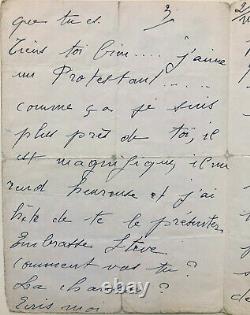 que tu es. 3/
Tiens toi bien.... j'aime
un Protestant.....
comme ça je suis
plus près de toi, il
est magnifique, il me
rend heureuse et j'ai
hâte de te le présenter
Embrasse Steve
comment vas tu ?
La chanson ?
Ecris moi
2/